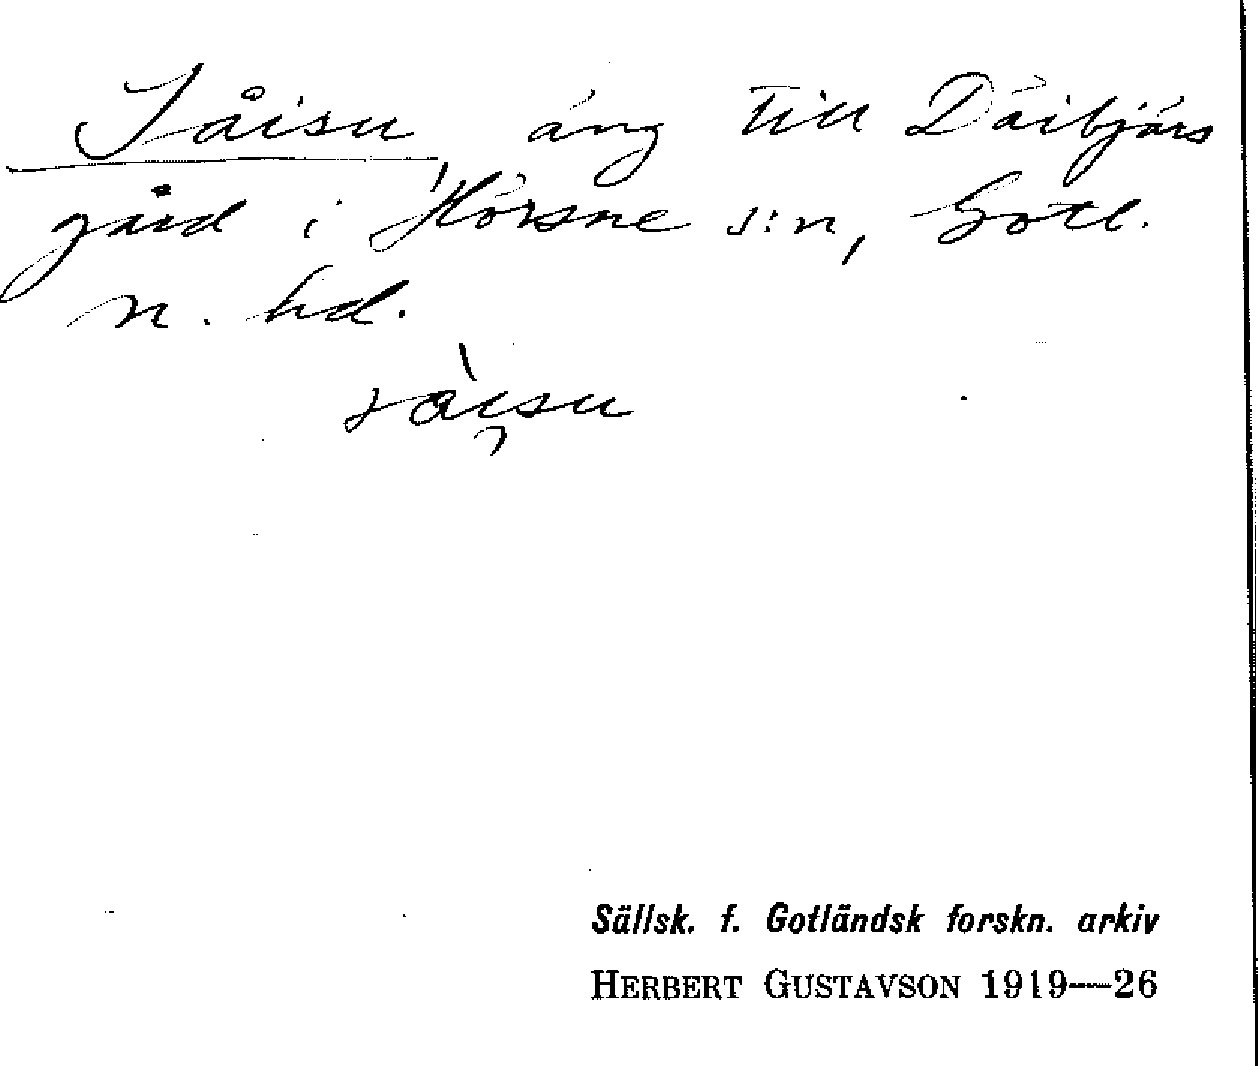 Såisu, äng till Däibjärs
gård i Hörsne s:n, Gotl.
n. hd.
såisu
Sällsk. f. Gotländsk forskn. arkiv
HERBERT GUSTAVSON 1919—26